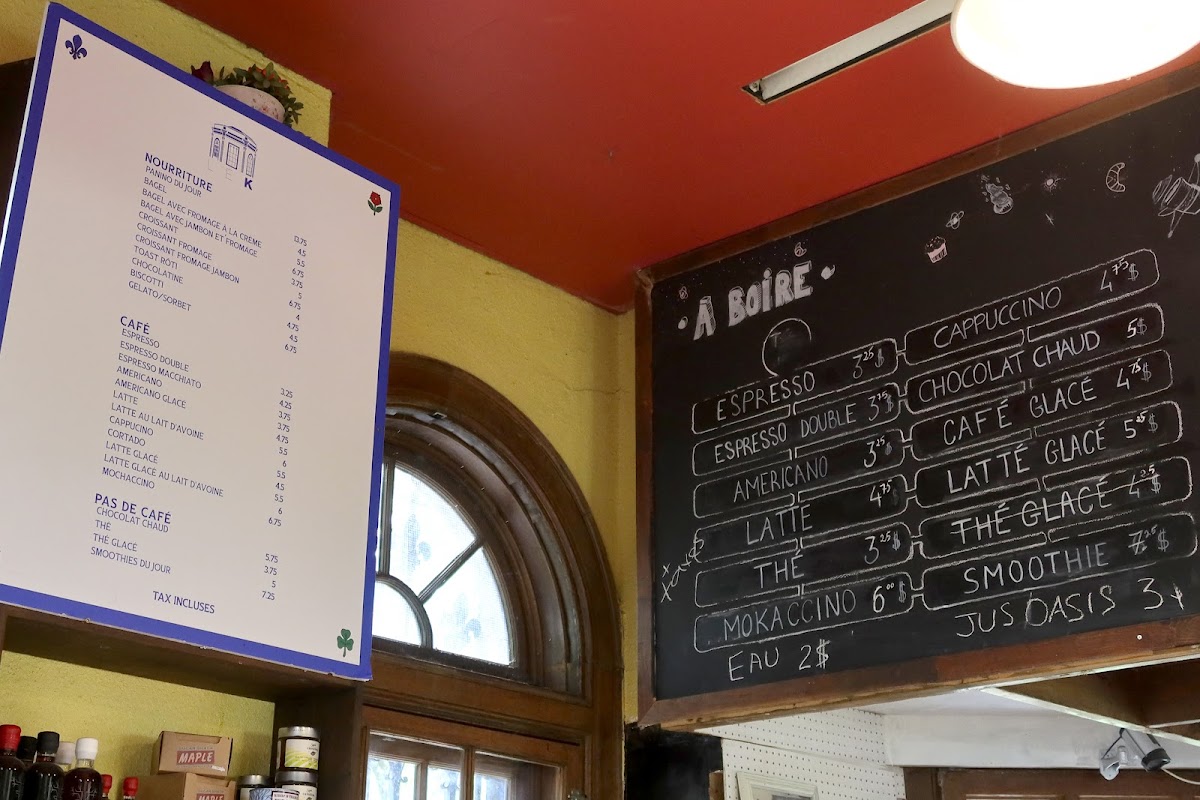 E K
NOURRITURE
PANINO DU JOUR 13.75
BAGEL 4.5
BAGEL AVEC FROMAGE À LA CRÈME 5.5
BAGEL AVEC JAMBON ET FROMAGE 6.75
CROISSANT 3.75
CROISSANT FROMAGE 5
CROISSANT FROMAGE JAMBON 6.75
TOAST RÔTI 4
CHOCOLATINE 4.75
BISCOTTI 4.5
GELATO/SORBET 6.75
CAFÉ
ESPRESSO 3.25
ESPRESSO DOUBLE 4.25
ESPRESSO MACCHIATO 3.75
AMERICANO 3.75
AMERICANO GLACÉ 4.75
LATTE 5.5
LATTE AU LAIT D'AVOINE 6
CAPPUCINO 5.5
CORTADO 4.5
LATTE GLACÉ 5.5
LATTE GLACÉ AU LAIT D'AVOINE 6
MOCHACCINO 6.75
PAS DE CAFÉ
CHOCOLAT CHAUD 5.75
THÉ 3.75
THÉ GLACÉ 5
SMOOTHIES DU JOUR 7.25
TAX INCLUSES
• A BOIRE •
ESPRESSO 3.25$
ESPRESSO DOUBLE 3.75$
AMERICANO 3.25$
LATTE 4.75
THÉ 3.25$
MOKACCINO 6.00$
EAU 2$
CAPPUCCINO 4.75$
CHOCOLAT CHAUD 5$
CAFÉ GLACÉ 4.75$
LATTÉ GLACÉ 5.25$
THÉ GLACÉ 4.25$
SMOOTHIE 7.25$
JUS OASIS 3$
MAPLE
MAPLE